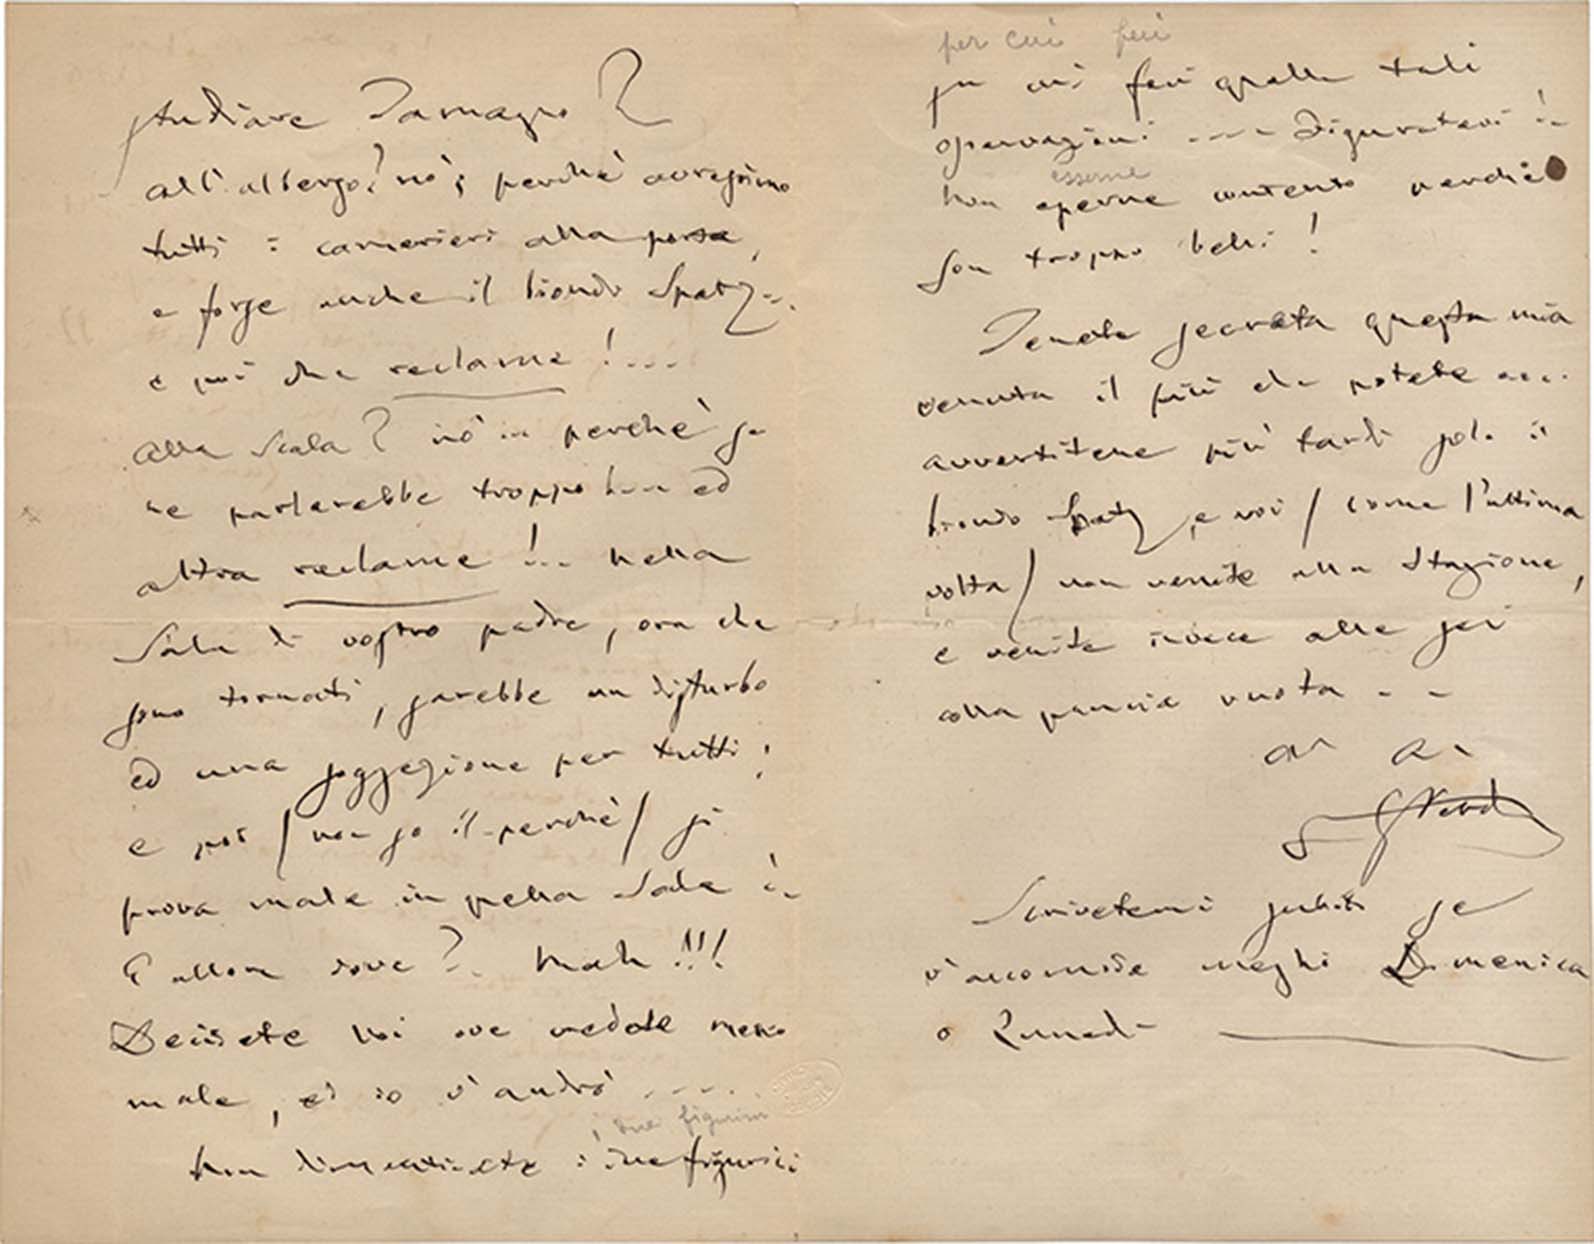 studiare Tamagno?
all'albergo? nò; perchè avressimo
tutti i camerieri alla porta,
e forse anche il biondo Spatz...
e poi che reclame!...
Alla Scala? nò... perchè se
ne parlerebbe troppo ... ed
altra reclame!.. Nella
Sala di vostro padre, ora che
sono tornati, sarebbe un disturbo
ed una soggezione per tutti;
e poi / non so il perchè / si
prova male in quella Sala ...
E allora dove?.. Mah!!!
Decidete voi ove vedete meno
male, ed io v'andrò ....
i due figurini
Non dimenticate i due figurini
per cui feci
per cui feci quelle tali
osservazioni .... Figuratevi ..
esserne
non esserne contento perchè
son troppo belli!
Tenete secreta questa mia
venuta il più che potete ...
avvertitene più tardi solo il
biondo Spatz, e voi / come l'ultima
volta / non venite alla Stazione,
e venite invece alle sei
colla pancia vuota - -
G Verdi
Scrivetemi subito se
v'accomoda meglio Domenica
o Lunedì